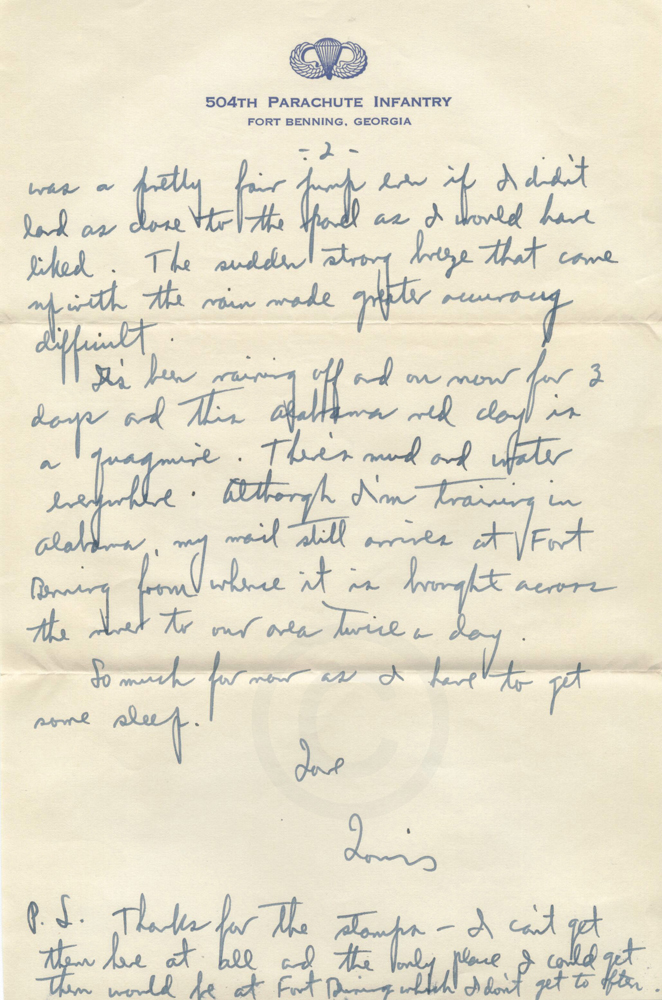 504TH PARACHUTE INFANTRY
FORT BENNING, GEORGIA
- 2 -
was a pretty fair jump even if I didn't
land as close to the panel as I would have
liked. The sudden strong breeze that came
up with the rain made greater accuracy
difficult.
It's been raining off and on now for 3
days and this Alabama red clay is
a quagmire. There's mud and water
everywhere. Although I'm training in
Alabama, my mail still arrives at Fort
Benning from whence it is brought across
the river to our area twice a day.
So much for now as I have to get
some sleep.
Love
Louis
P.S. Thanks for the stamps - I can't get
them here at all and the only place I could get
them would be at Fort Benning which I don't get to often.